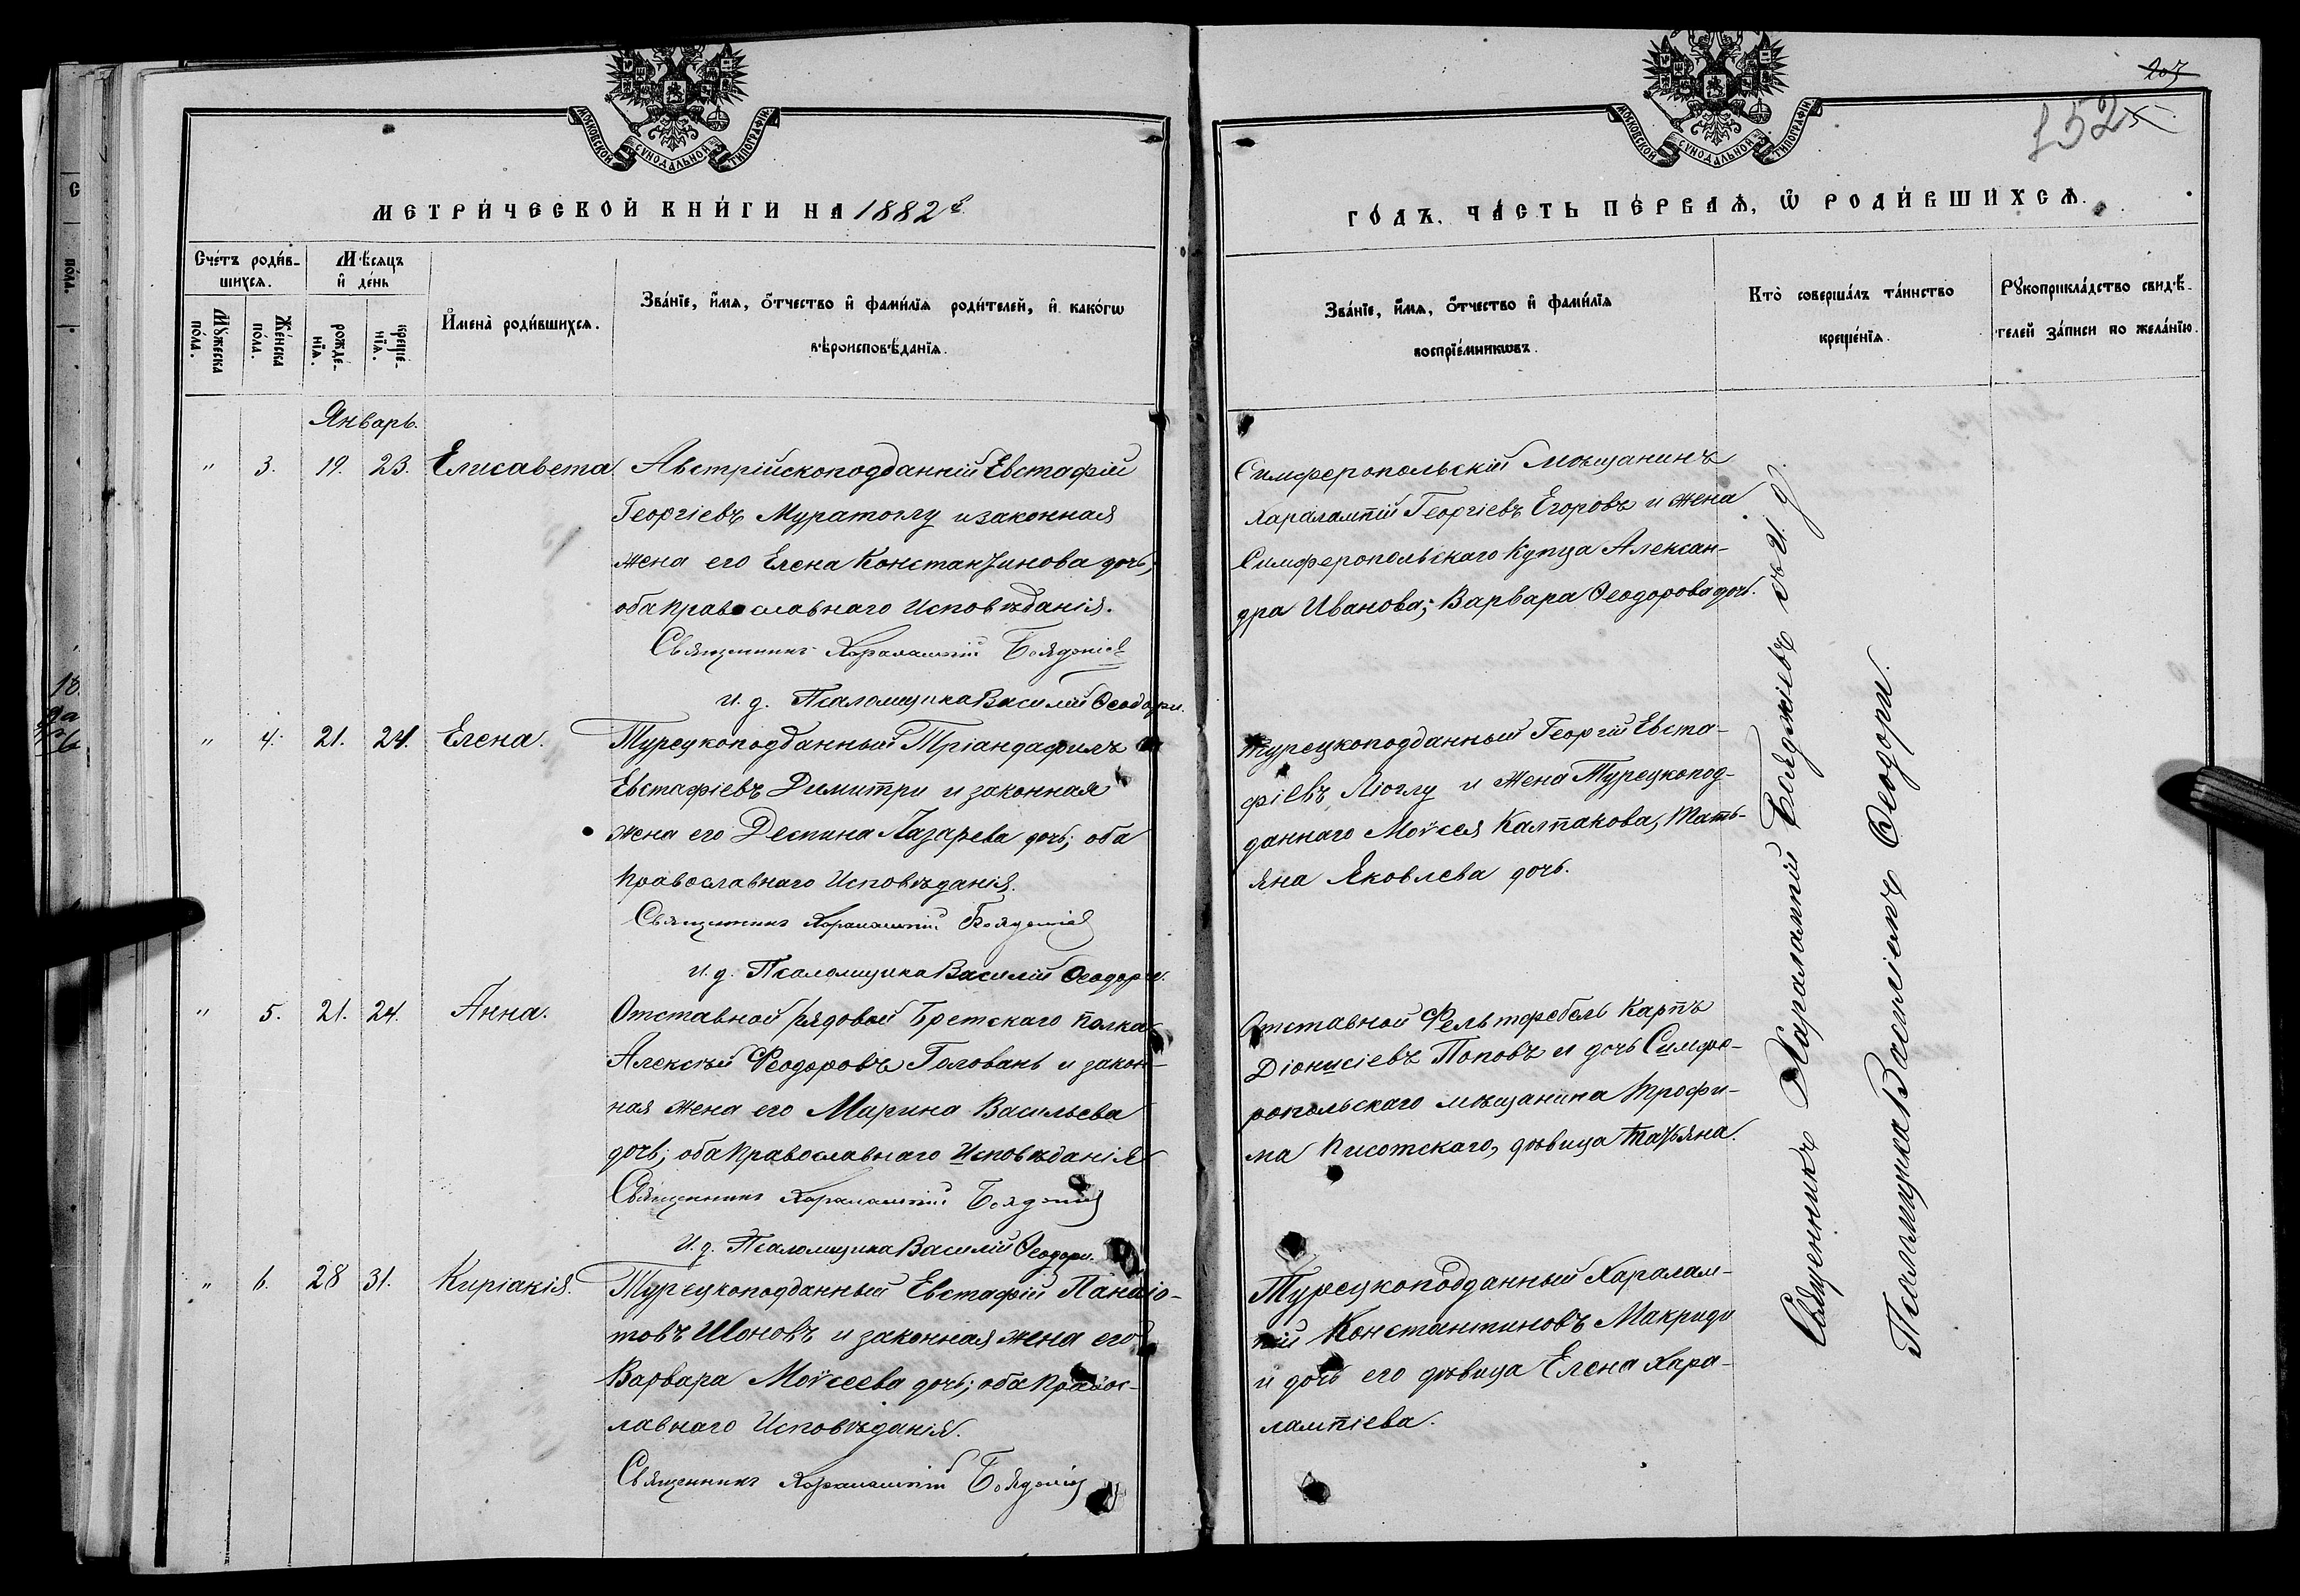 МОСКОВСКОЙ СУНОДАЛЬНОЙ ТИПОГРАФІИ
МЕТРИ́ЧЕСКОЙ КНИ́ГИ НА 1882 й
Сче́тъ роди́в-
шихся.
Мꙋ́жеска
по́ла.
Же́нска
по́ла.
Мѣ́сяцъ
и҆ де́нь
рожде́-
нїѧ.
креще́-
нїѧ.
И҆мена̀ роди́вшихся.
Зва́нїе, и҆́мѧ, ѻ҆́тчество и҆ фами́лїѧ роди́телей, и҆ како́гѡ
вѣроисповѣ́данїѧ.
Январь.
" 3. 19. 23. Елисавета.
Австрійскоподданній Евстафій
Георгіевъ Муратоглу и законная
жена его Елена Константинова дочь,
оба православнаго Исповѣданія.
Священникъ Харалампій Бояджіев
И. д. Псаломщика Василій Ѳеодори.
" 4. 21. 24. Елена.
Турецкоподданный Тріандафилъ
Евстафіевъ Димитри и законная
жена его Деспина Лазарева дочь; оба
православнаго Исповѣданія.
Священникъ Харалампій Бояджіев
И. д. Псаломщика Василій Ѳеодори.
" 5. 21. 24. Анна.
Отставной рядовой Бретскаго полка
Алексѣй Феодоровъ Головань и закон-
ная жена его Марина Васильева
дочь; оба православнаго Исповѣданія
Священникъ Харалампій Бояджіев
И. д. Псаломщика Василій Ѳеодори.
" 6. 28 31. Киріакія.
Турецкоподданный Евстафій Панаіо-
товъ Шоновъ и законная жена его
Варвара Моѵсеева дочь; оба правос-
лавнаго Исповѣданія.
Священникъ Харалампій Бояджіев
207
152
МОСКОВСКОЙ СУНОДАЛЬНОЙ ТИПОГРАФІИ
ГО́ДЪ, ЧА́СТЬ ПЕ́РВАѦ, Ѡ҆ РОДИ́ВШИХСѦ.
Зва́нїе, и҆́мѧ, ѻ҆́тчество и҆ фами́лїѧ
воспрїе́мникѡвъ.
Кто̀ соверша́лъ та́инство
креще́нїѧ.
Рꙋкоприкла́дство свидѣ́-
телей за́писи по жела́нїю.
Симферопольскій Мѣщанинъ
Харалампій Георгіевъ Егоровъ и жена
Симферопольскаго купца Алексан-
дра Иванова; Варвара Ѳеодорова дочь.
Турецкоподданный Георгій Евста-
фіевъ Ліоглу и жена Турецкопод-
даннаго Моѵсея Калпакова, Тать-
яна Яковлева дочь.
Отставной Фельтфебель Карпъ
Діонисіевъ Поповъ и дочь Симфе-
ропольскаго мѣщанина Трофи-
ма Писотскаго, дѣвица Татьяна.
Турецкоподданный Харалам-
пій Константиновъ Макриди
и дочь его дѣвица Елена Хара-
лампіева.
Священникъ Харалампій Бояджіевъ съ И. д.
Псаломщика Василіемъ Ѳеодори.